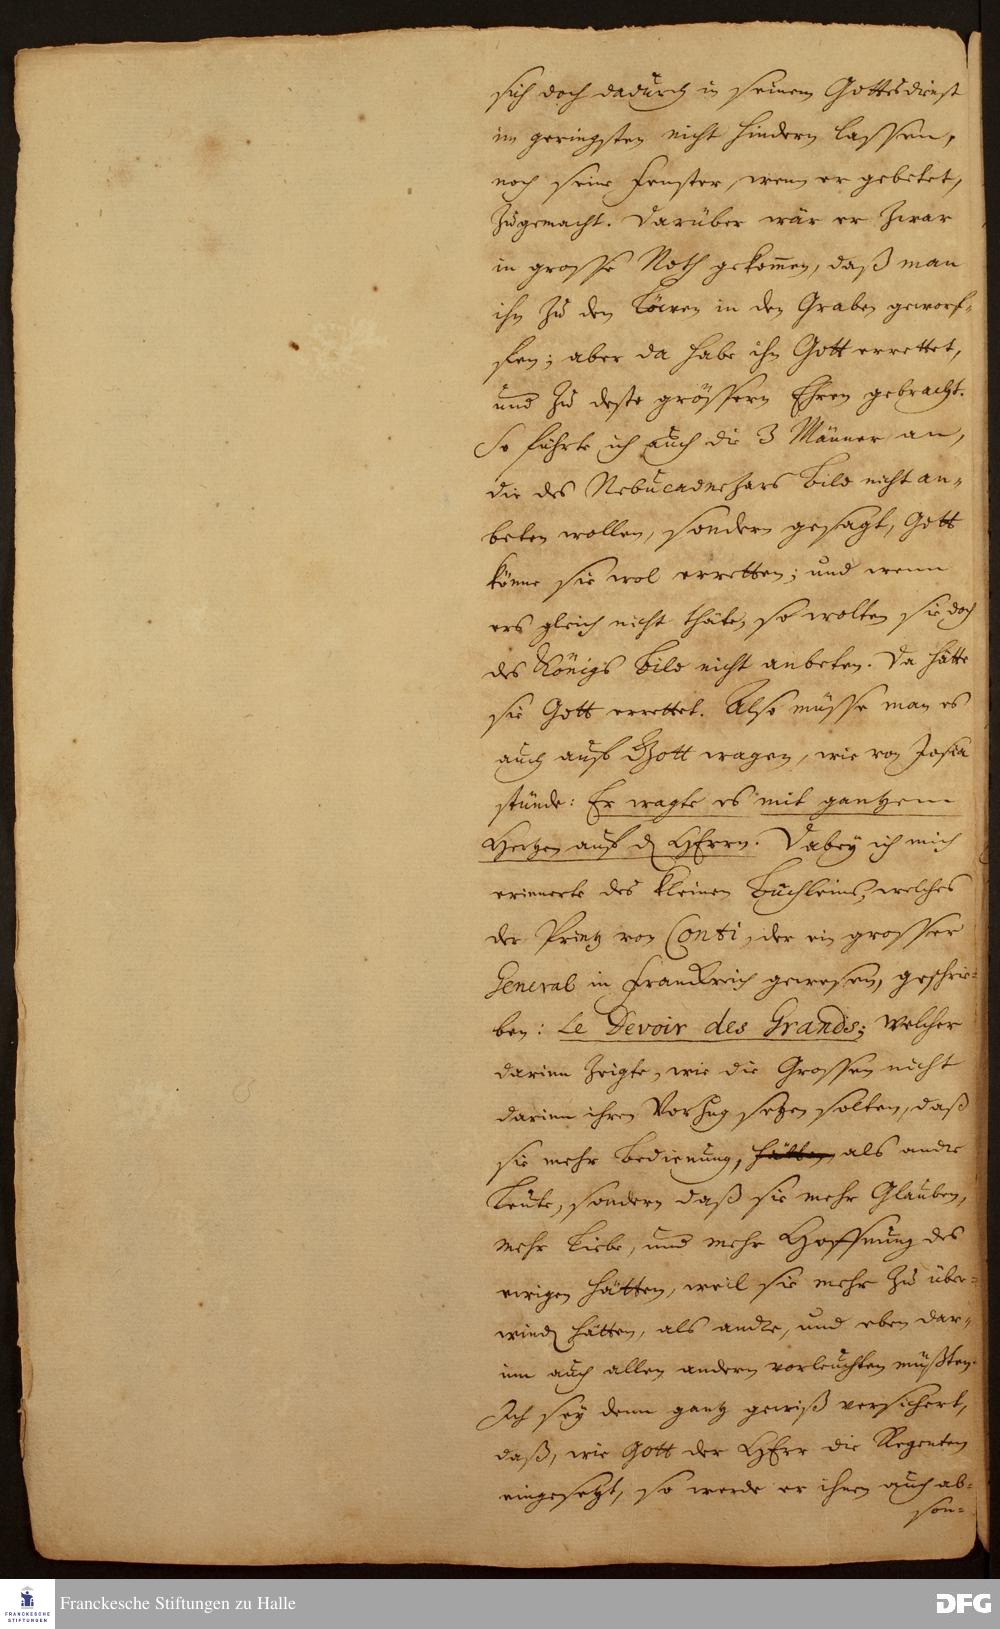 sich doch dadurch in seinem Gottesdienst
im geringsten nicht hindern lassen,
noch seine Fenster, wenn er gebetet,
zugemacht. Darüber wär er zwar
in grosse Noth gekom̄en, daß man
ihn zu den Löwen in den Graben geworf-
fen; aber da habe ihn Gott errettet,
und zu desto grössern Ehren gebracht.
So führte ich auch die 3 Männer an,
die des Nebucadnezars Bild nicht an-
beten wollen, sondern gesagt, Gott
könne sie wol erretten; und wenn
ers gleich nicht thäte, so wolten sie doch
des Königs Bild nicht anbeten. Da hätte
sie Gott errettet. Also müsse man es
auch auf Gott wagen, wie von Josia
stünde: Er wagte es mit gantzem
Hertzen auf d HErrn. Dabey ich mich
erinnerte des kleinen Buchleins, welches
der Printz von Conti, der ein grosser
General in Franckreich gewesen, geschrie-
ben: Le Devoir des Grands; welcher
darinn zeigte, wie die Grossen nicht
darinn ihren Vorzug setzen solten, daß
sie mehr Bedienung, hätten als andre
Leute, sondern daß sie mehr Glauben,
mehr Liebe, und mehr Hoffnung des
ewigen hätten, weil sie mehr zu über-
wind hätten, als andre, und eben dar-
inn auch allen andern vorleuchten müßten.
Ich sey denn gantz gewiß versichert,
daß, wie Gott der HErr die Regenten
eingesetzt, so werde er ihnen auch ab-
son-
FRANCKESCHE
STIFTUNGEN
Franckesche Stiftungen zu Halle
DFG